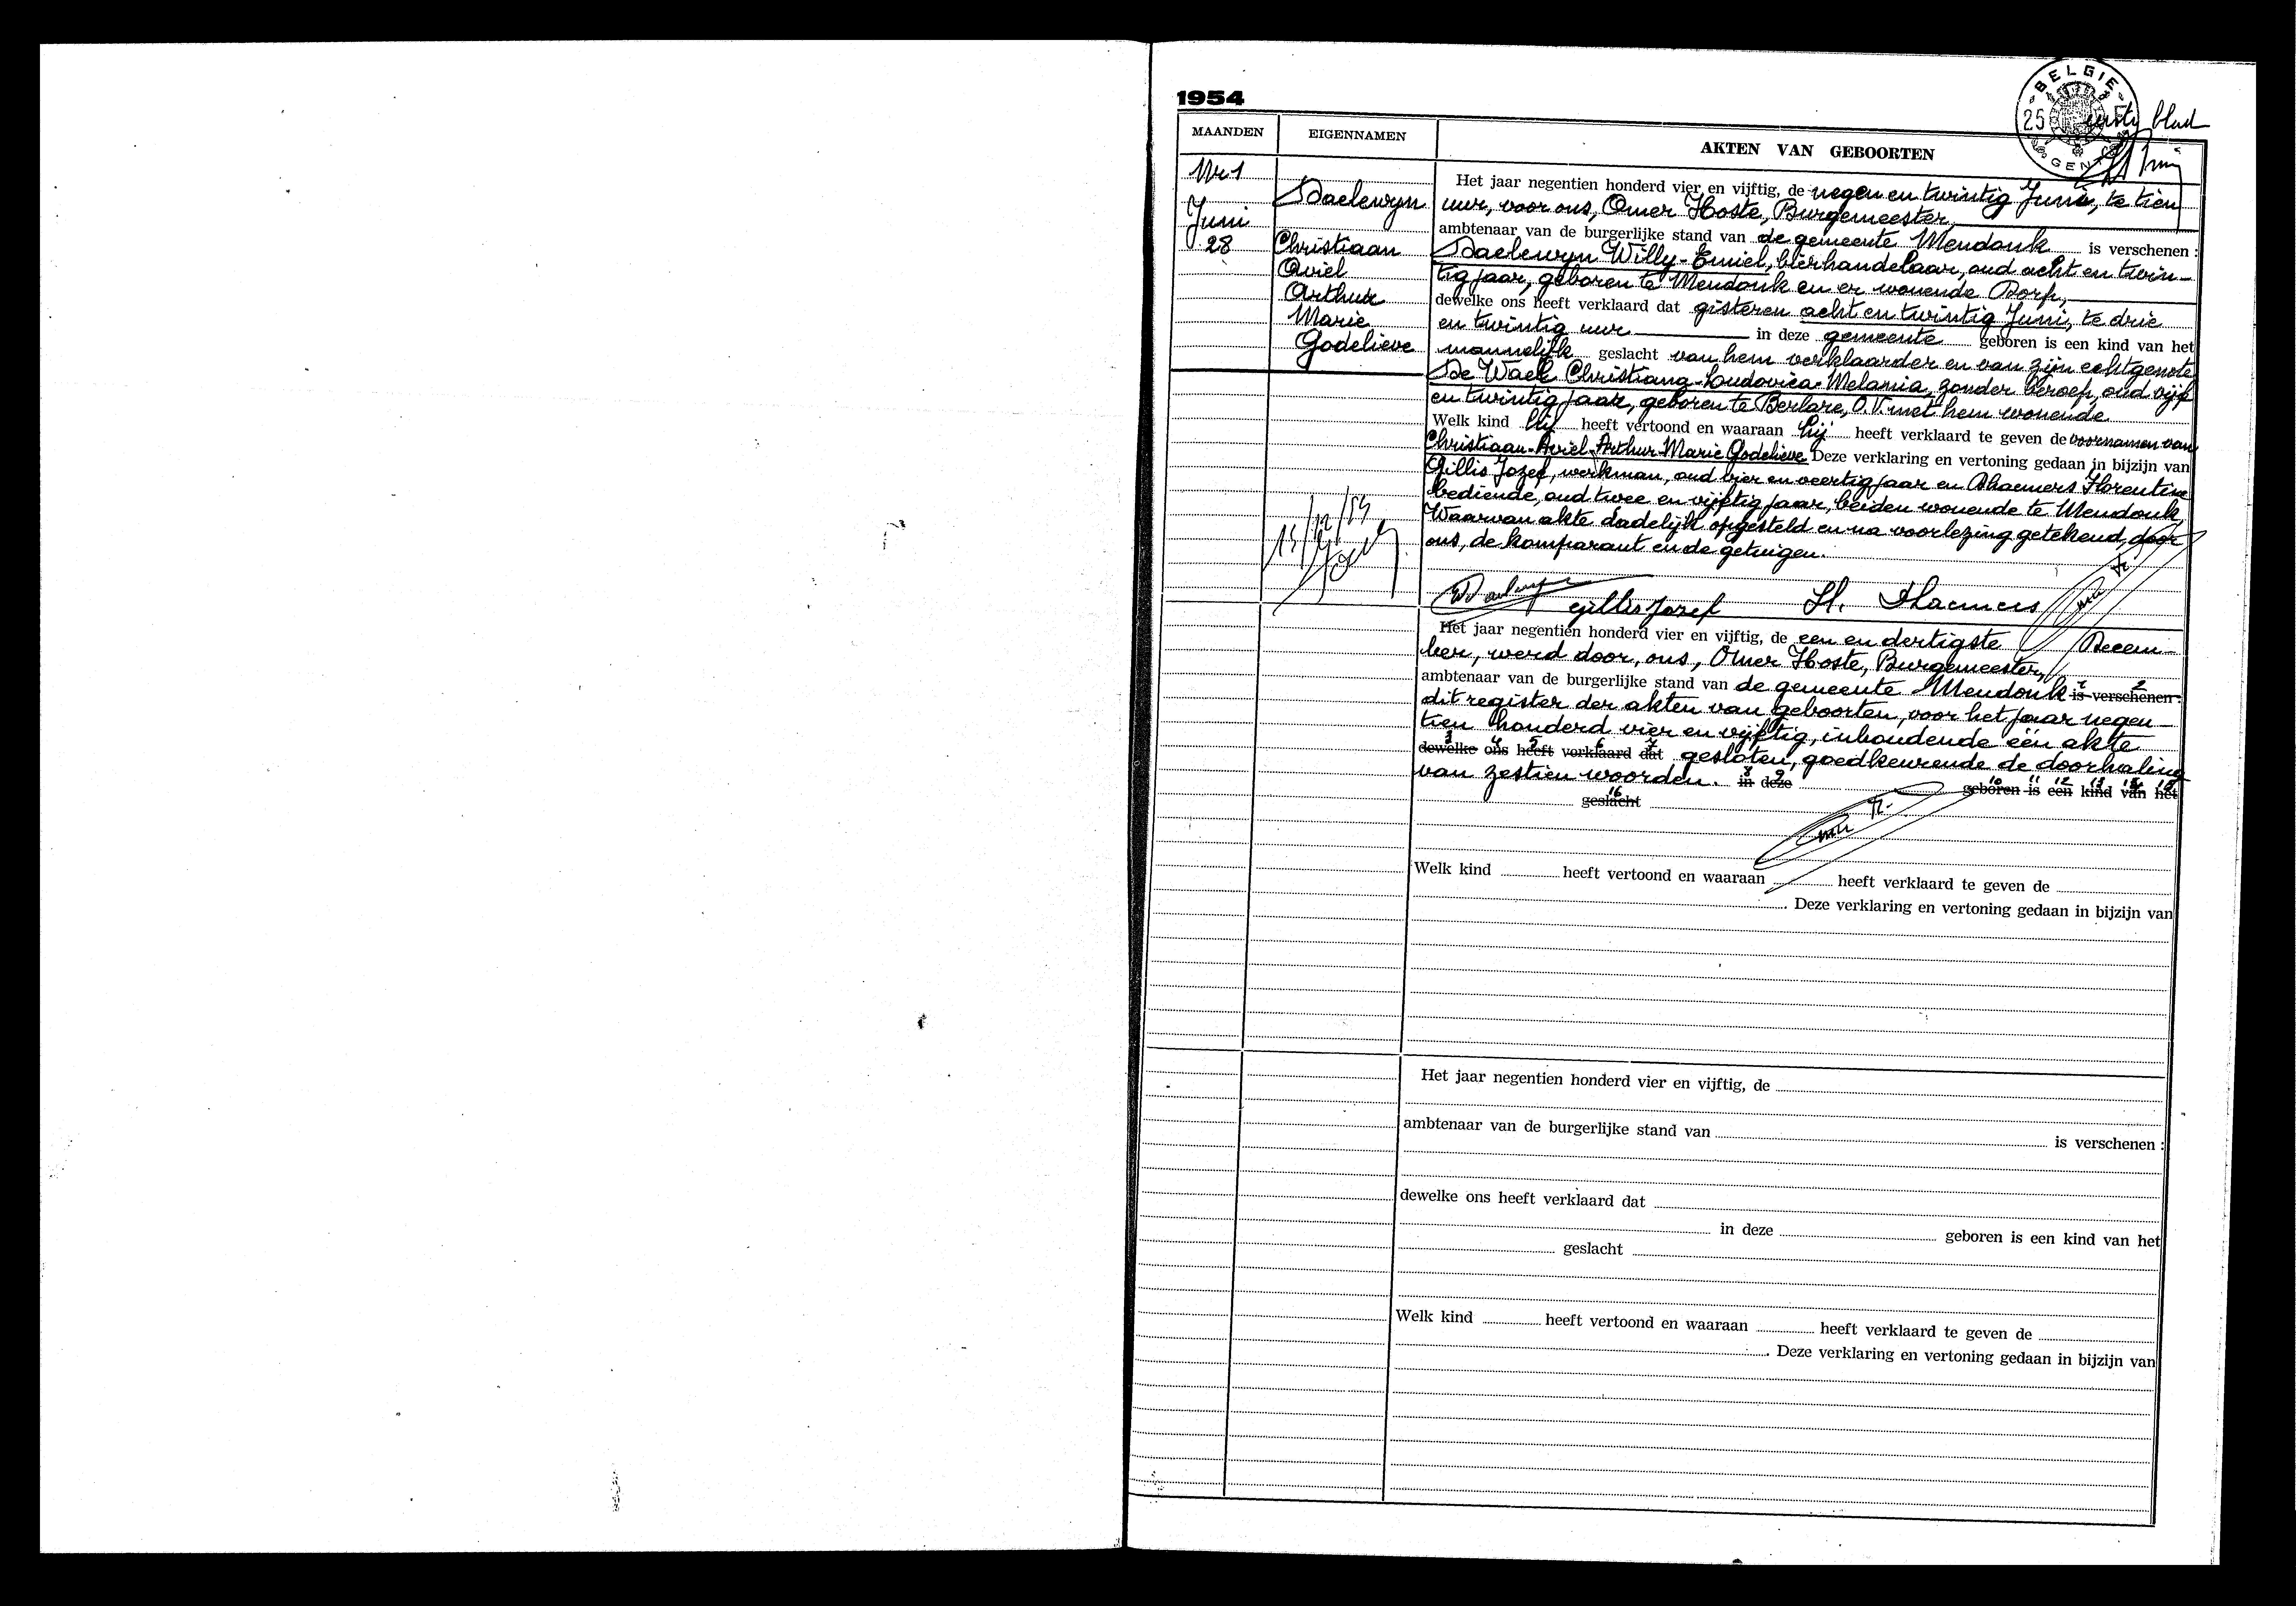 1954
BELGIE
25 F
GENT
eerste blad
MAANDEN
EIGENNAMEN
AKTEN VAN GEBOORTEN
Nr 1
Juni
28
Daelewyn
Christiaan
Aviel
Arthur
Marie
Godelieve
Het jaar negentien honderd vier en vijftig, de negen en twintig Juni, te tien
uur, voor ons, Omer Hoste, Burgemeester,
ambtenaar van de burgerlijke stand van de gemeente Mendonk is verschenen :
Daelewyn Willy-Emiel, bierhandelaar, oud acht en twin-
tig jaar, geboren te Mendonk en er wonende Dorp,
dewelke ons heeft verklaard dat gisteren acht en twintig Juni, te drie
en twintig uur in deze gemeente geboren is een kind van het
mannelijk geslacht van hem verklaarder en van zijn echtgenote
De Waele Christiana-Ludovica-Melania, zonder beroep, oud vijf
en twintig jaar, geboren te Berlare, O.V. met hem wonende
Welk kind hij heeft vertoond en waaraan hij heeft verklaard te geven de voornamen van
Christiaan-Aviel-Arthur-Marie Godelieve Deze verklaring en vertoning gedaan in bijzijn van
Gillis Jozef, werkman, oud vier en veertig jaar en Dhaemers Florentine
bediende, oud twee en vijftig jaar, beiden wonende te Mendonk,
Waarvan akte dadelijk opgesteld en na voorlezing getekend, door
ons, de komparant en de getuigen.
Gillis Jozef
Het jaar negentien honderd vier en vijftig, de een en dertigste Decem-
ber, werd door, ons, Omer Hoste, Burgemeester,
ambtenaar van de burgerlijke stand van de gemeente Mendonk is verschenen :
1 2
dit register der akten van geboorten, voor het jaar negen-
tien honderd vier en vijftig, inhoudende één akte
3 4 5 6 7
dewelke ons heeft verklaard dat gesloten, goedkeurende de doorhaling
van zestien woorden. in deze geboren is een kind van het
8 9 10 11 12 13 14 15
16
geslacht
Welk kind heeft vertoond en waaraan heeft verklaard te geven de
. Deze verklaring en vertoning gedaan in bijzijn van
Het jaar negentien honderd vier en vijftig, de
ambtenaar van de burgerlijke stand van is verschenen :
dewelke ons heeft verklaard dat
in deze geboren is een kind van het
geslacht
Welk kind heeft vertoond en waaraan heeft verklaard te geven de
. Deze verklaring en vertoning gedaan in bijzijn van